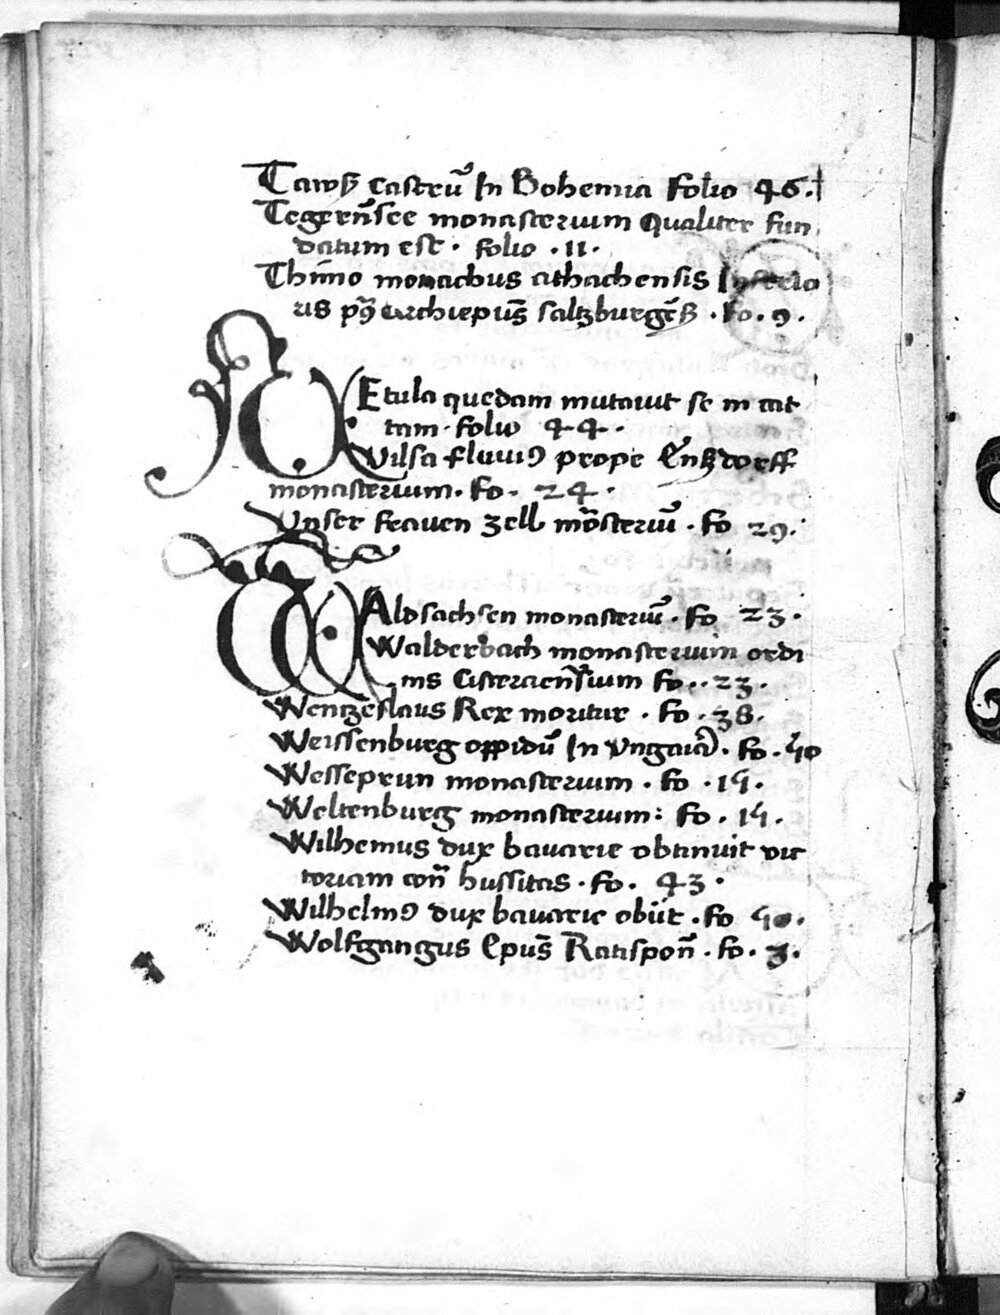 Tawsz castrũ In Bohemia Folio 46.
Tegerñsee monasterium Qualiter fun
datum est . folio . 11 .
Thim̃o monachus athachensis Inferio
ris p9 archiepus̃ saltzburgeñsz . Fo . 9 .
VEtula quedam mutavit se in cat
tam . folio 44 .
Vilsa fluvi9 prope Enszdorff
monasterium . Fo . 24 .
Unser frawen zell mõsteriũ . Fo 29 .
WAldsachsen monasteriũ . Fo 23 .
Walderbach monasterium ordi
nis cisterciensium Fo . . 23 .
Wentzeslaus Rex moritur . Fo . 38 .
Weissenburg oppidũ In Ungaria . Fo . 40
Wesseprun monasterium . Fo . 14 .
Weltenburg monasterium : Fo . 14 .
Wilhemus dux bavarie obtinuit vic
toriam coñ hussitas . Fo . 43 .
Wilhelm9 dux bavarie obiit . Fo 40 .
Wolfgangus Epus̃ Ratispoñ . Fo . 3 .